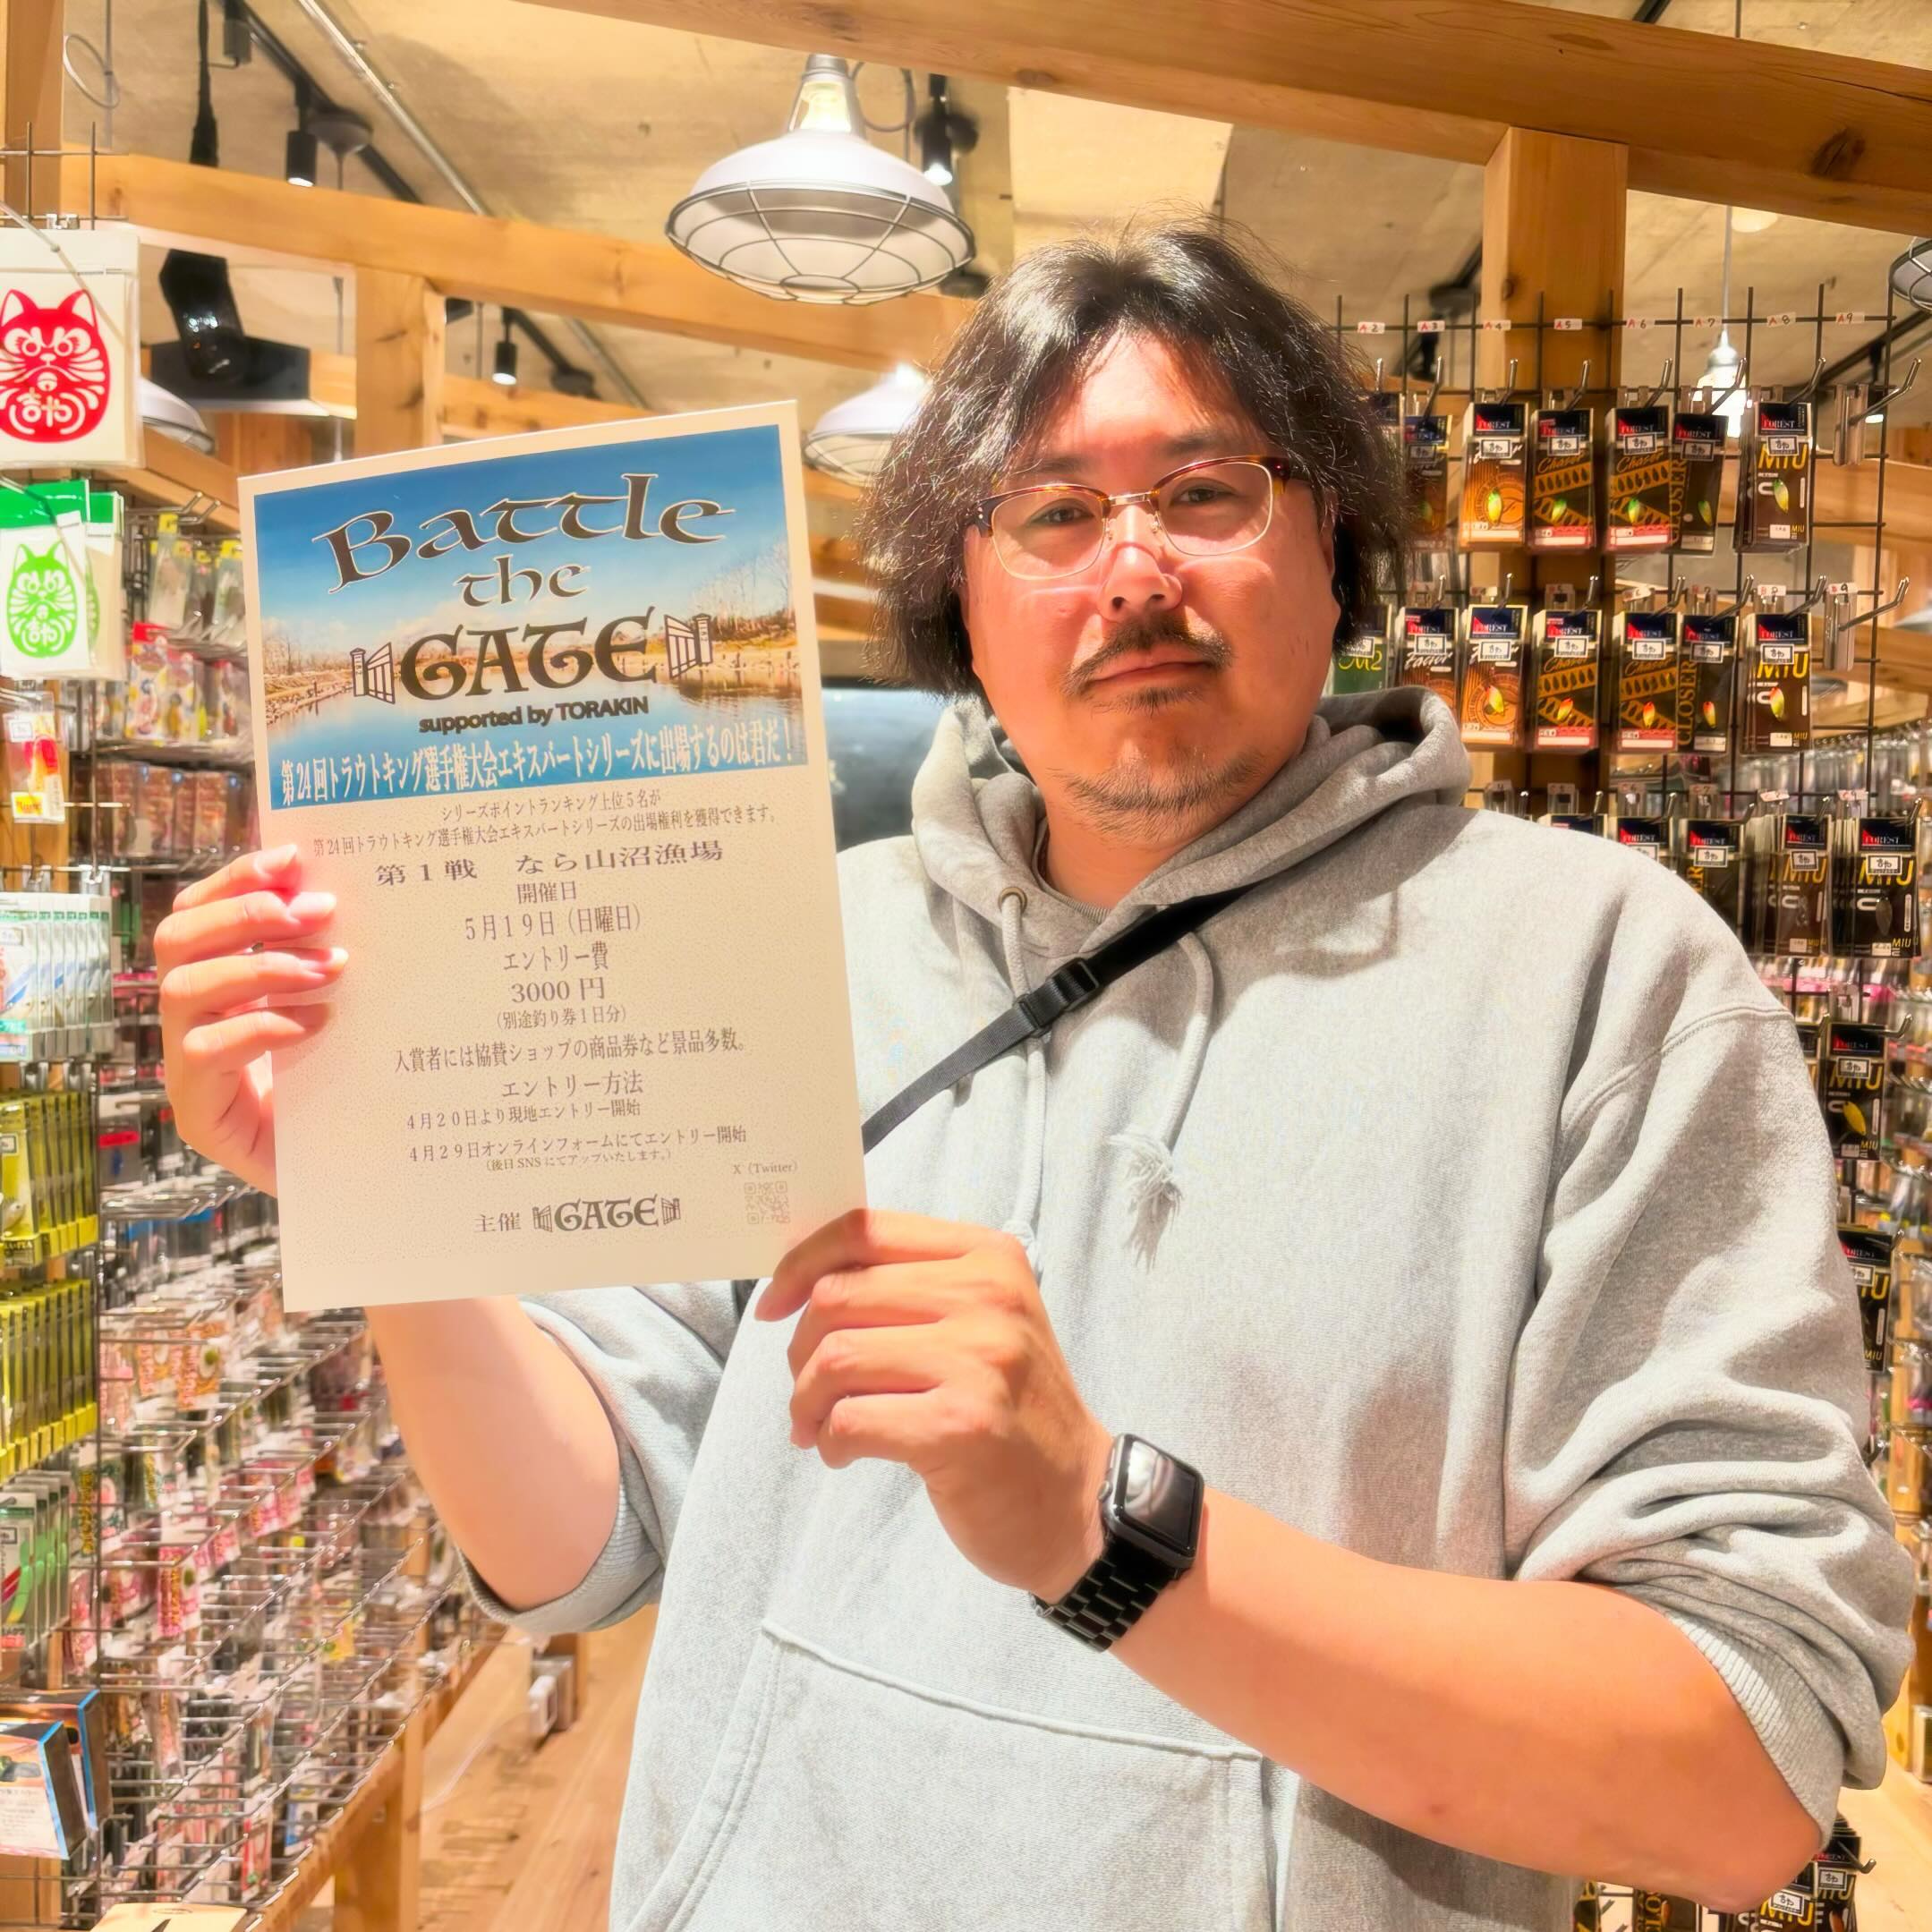 Battle
the
GATE
supported by TORAKIN
第24回トラウトキング選手権大会エキスパートシリーズに出場するのは君だ！
シリーズポイントランキング上位5名が
第24回トラウトキング選手権大会エキスパートシリーズの出場権利を獲得できます。
第1戦　なら山沼漁場
開催日
5月19日（日曜日）
エントリー費
3000円
（別途釣り券1日分）
入賞者には協賛ショップの商品券など景品多数。
エントリー方法
4月20日より現地エントリー開始
4月29日オンラインフォームにてエントリー開始
（後日SNSにてアップいたします。）
X（Twitter）
主催 GATE
吉や
吉や
A2 A3 A4 A5 A6 A7 A8 A9
FOREST
MIU
CLOSER
Chaser